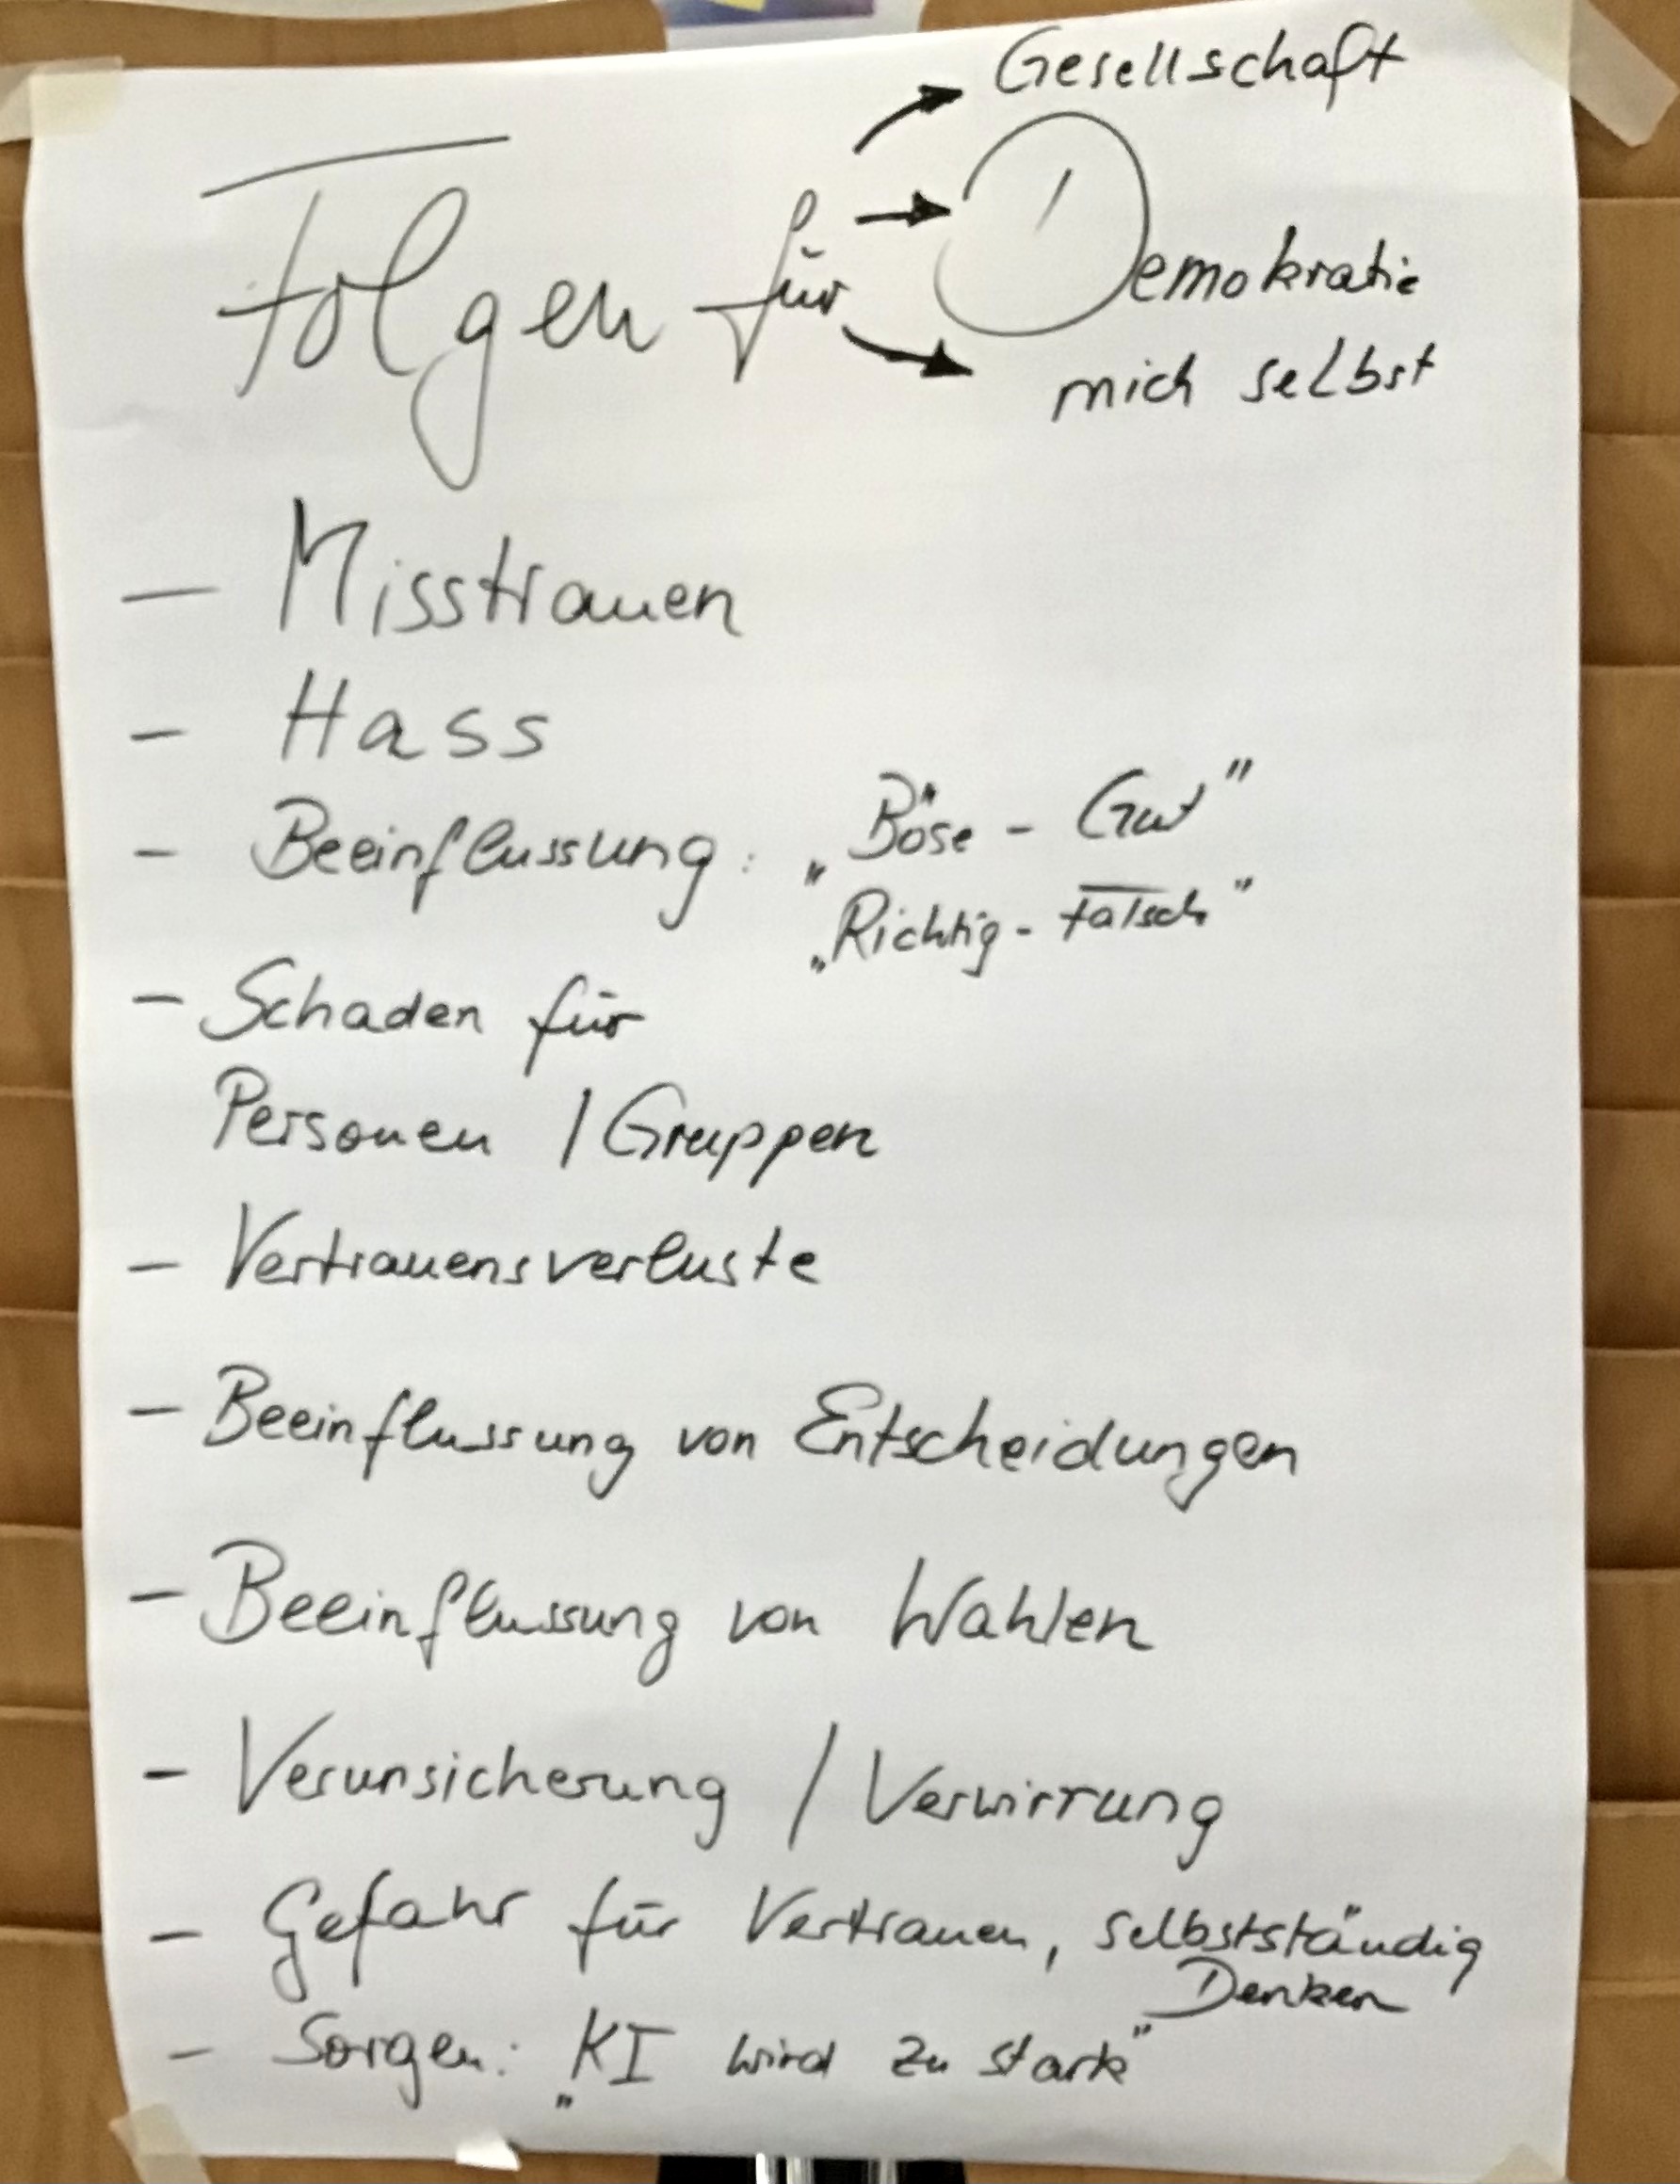 Folgen für → Gesellschaft
→ Demokratie
→ mich selbst
— Misstrauen
- Hass
- Beeinflussung: „Böse - Gut"
„Richtig - Falsch"
- Schaden für
Personen / Gruppen
- Vertrauensverluste
- Beeinflussung von Entscheidungen
- Beeinflussung von Wahlen
- Verunsicherung / Verwirrung
- Gefahr für Vertrauen, selbstständig
Denken
- Sorgen: „KI wird zu stark"